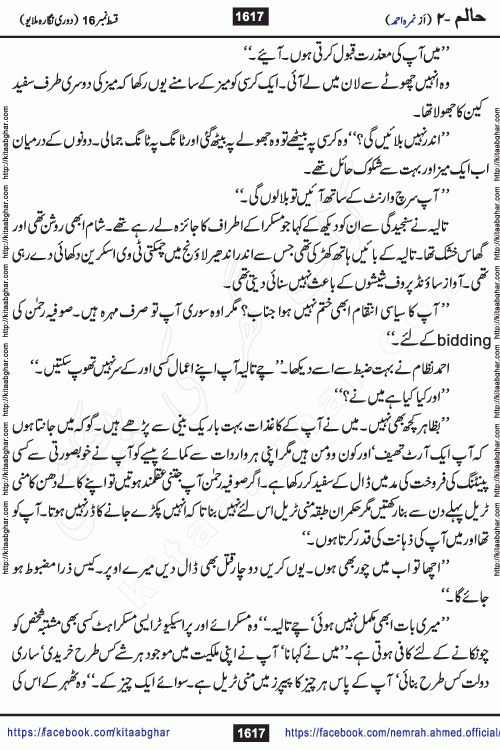 قسط نمبر 16 (دوری نگارہ ملایو)
1617
حالم -۲ (از نمرہ احمد)
’’میں آپ کی معذرت قبول کرتی ہوں۔ آیئے۔‘‘
وہ انہیں چھوٹے سے لان میں لے آئی۔ ایک کرسی کو میز کے سامنے یوں رکھا کہ میز کی دوسری طرف سفید
کین کا جھولا تھا۔
’’اندر نہیں بلائیں گی؟‘‘ وہ کرسی پہ بیٹھے تو وہ جھولے پہ بیٹھ گئی اور ٹانگ پہ ٹانگ جمالی۔ دونوں کے درمیان
اب ایک میز اور بہت سے شکوک حائل تھے۔
’’آپ سرچ وارنٹ کے ساتھ آئیں تو بلالوں گی۔‘‘
تالیہ نے سنجیدگی سے ان کو دیکھ کے کہا جو مسکرا کے اطراف کا جائزہ لے رہے تھے۔ شام ابھی روشن تھی اور
گھاس خشک تھا۔ تالیہ کے بائیں ہاتھ کھڑکی تھی جس سے اندر اندھیر لاؤنج میں چمکتی ٹی وی اسکرین دکھائی دے رہی
تھی۔ آواز ساؤنڈ پروف شیشوں کے باعث نہیں سنائی دیتی تھی۔
’’آپ کا سیاسی انتقام ابھی ختم نہیں ہوا جناب؟ مگر اوہ سوری آپ تو صرف مہرہ ہیں۔ صوفیہ رحمٰن کی
bidding کے لئے۔‘‘
احمد نظام نے بہت ضبط سے اسے دیکھا۔ ’’چے تالیہ آپ اپنے اعمال کسی اور کے سر نہیں تھوپ سکتیں۔‘‘
’’اور کیا کیا ہے میں نے؟‘‘
’’بظاہر کچھ بھی نہیں۔ میں نے آپ کے کاغذات بہت باریک بینی سے پڑھے ہیں۔ گو کہ میں جانتا ہوں
کہ آپ ایک آرٹ تھیف‘ اور کون وومن ہیں مگر اپنی ہر واردات سے کمائے پیسے کو آپ نے خوبصورتی سے کسی
پینٹنگ کی فروخت کی مد میں ڈال کے سفید کر رکھا ہے۔ اگر صوفیہ رحمٰن آپ جتنی عقلمند ہوتیں تو اپنے کالے دھن کا منی
ٹریل پہلے دن سے بنا رکھتیں مگر حکمران طبقہ منی ٹریل اس لئے نہیں بناتا کہ انہیں پکڑے جانے کا ڈر نہیں ہوتا۔ آپ کو
تھا اور میں آپ کی ذہانت کی قدر کرتا ہوں۔‘‘
’’اچھا تو اب میں چور بھی ہوں۔ یوں کریں دو چار قتل بھی ڈال دیں میرے اوپر۔ کیس ذرا مضبوط ہو
جائے گا۔‘‘
’’میری بات ابھی مکمل نہیں ہوئی‘ چے تالیہ۔‘‘ وہ مسکرائے اور پراسیکیوٹر ایسی مسکراہٹ کسی بھی مشتبہ شخص کو
چونکانے کے لئے کافی ہوتی ہے۔ ’’میں نے کہا نا‘ آپ نے اپنی ملکیت میں موجود ہر شے کس طرح خریدی‘ ساری
دولت کس طرح بنائی‘ آپ کے پاس ہر چیز کا پیپرز میں منی ٹریل ہے۔ سوائے ایک چیز کے۔‘‘ وہ ٹھہر کے اس کی
https://facebook.com/kitaabghar
1617
https://facebook.com/nemrah.ahmed.official/